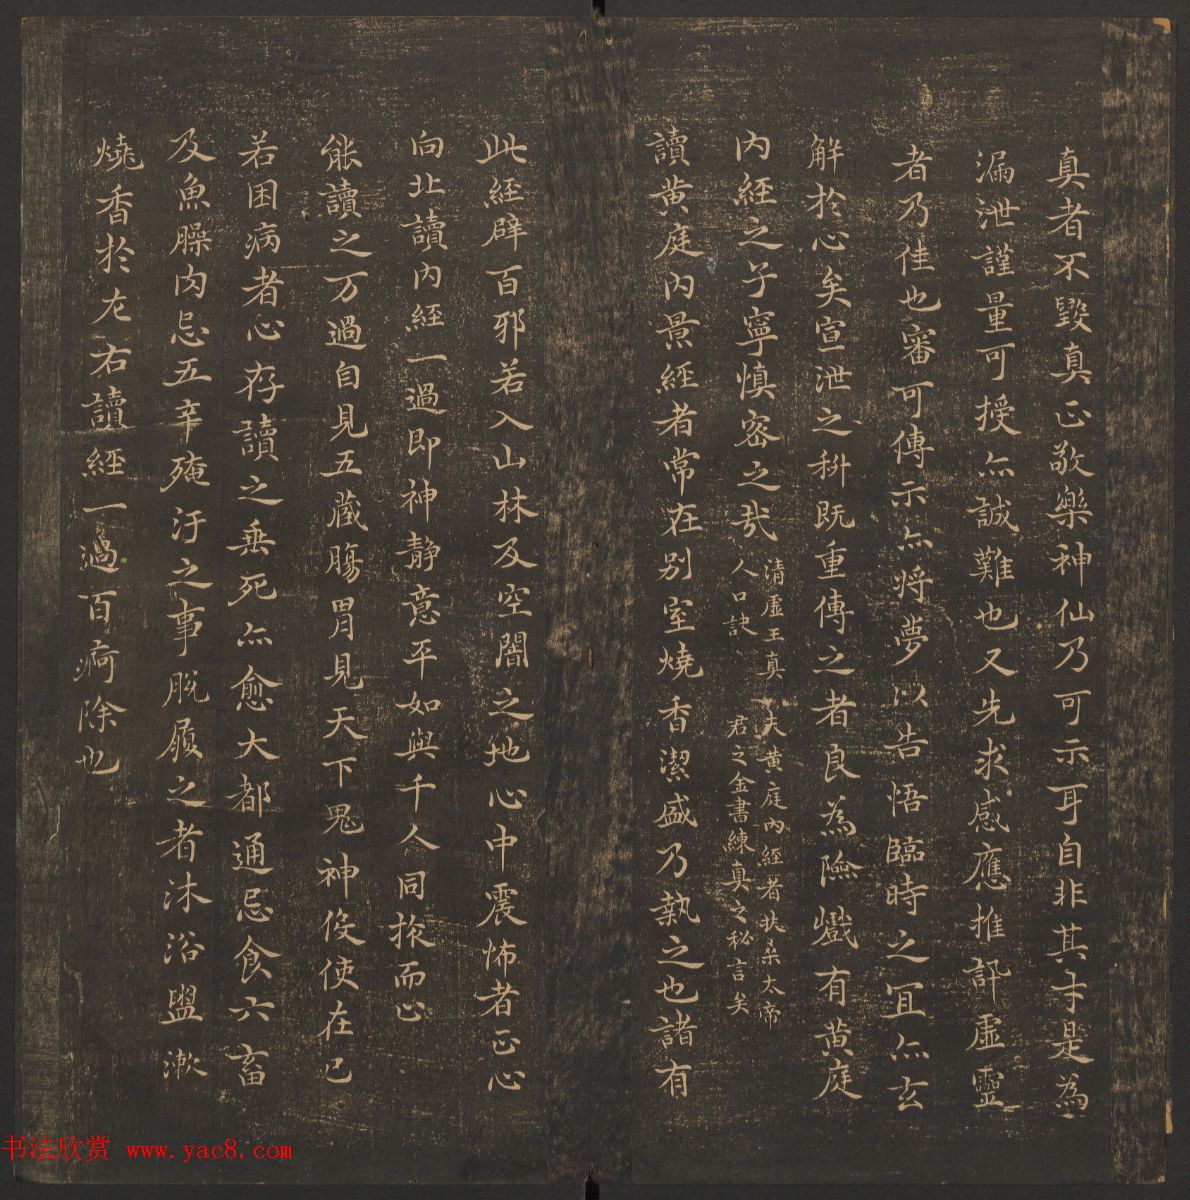 真者不毀真正敬樂神仙乃可示耳自非其才是為
漏泄謹量可授亦誠難也又先求感應推訊虛靈
者乃佳也審可傳示亦將夢以告悟臨時之宜亦玄
解於心矣宣泄之科既重傳之者良為險巇有黃庭
內經之子寧慎密之哉
清虛王真
人口訣
夫黃庭內經者扶桑太帝
君之金書練真之秘言矣
讀黃庭內景經者常在別室燒香潔盛乃執之也諸有
此經辟百邪若入山林及空闇之地心中震怖者正心
向北讀內經一過即神靜意平如與千人同掖而心
能讀之万過自見五藏腸胃見天下鬼神伇使在己
若困病者心存讀之垂死亦愈大都通忌食六畜
及魚臊肉忌五辛殗汙之事脫履之者沐浴盥漱
燒香於左右讀經一過百痾除也
书法欣赏 www.yac8.com